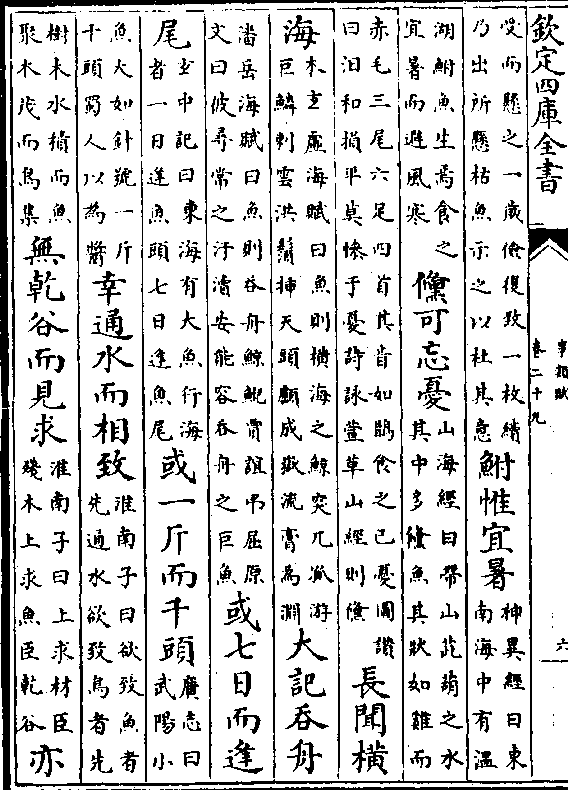 欽定四庫全書
事類賦
卷二十九
六
受而懸之一歲儉復致一枚續
乃出所懸枯魚示之以杜其意
鮒惟宜暑
神異經曰東
南海中有温
湖鮒魚生焉食之
宜暑而避風寒
儵可忘憂
山海經曰帶山茈葫之水
其中多鯈魚其狀如雞而
赤毛三尾六足四首其音如鵲食之已憂圖讚
曰汨和損平莫慘于憂詩詠萱草山經則儵
長聞橫
海
木玄虛海賦曰魚則橫海之鯨突兀孤游
巨鱗刺雲洪鬛挿天頭顱成嶽流膏為淵
大記吞舟
潘岳海賦曰魚則吞舟鯨鯢賈誼弔屈原
文曰彼尋常之汙瀆安能容吞舟之巨魚
或七日而逢
尾
玄中記曰東海有大魚行海
者一日逢魚頭七日逢魚尾
或一斤而千頭
廣志曰
武陽小
魚大如針號一斤
千頭蜀人以為醬
幸通水而相致
淮南子曰欲致魚者
先通水欲致鳥者先
樹木水積而魚
聚木茂而鳥集
無乾谷而見求
淮南子曰上求材臣
殘木上求魚臣乾谷
亦